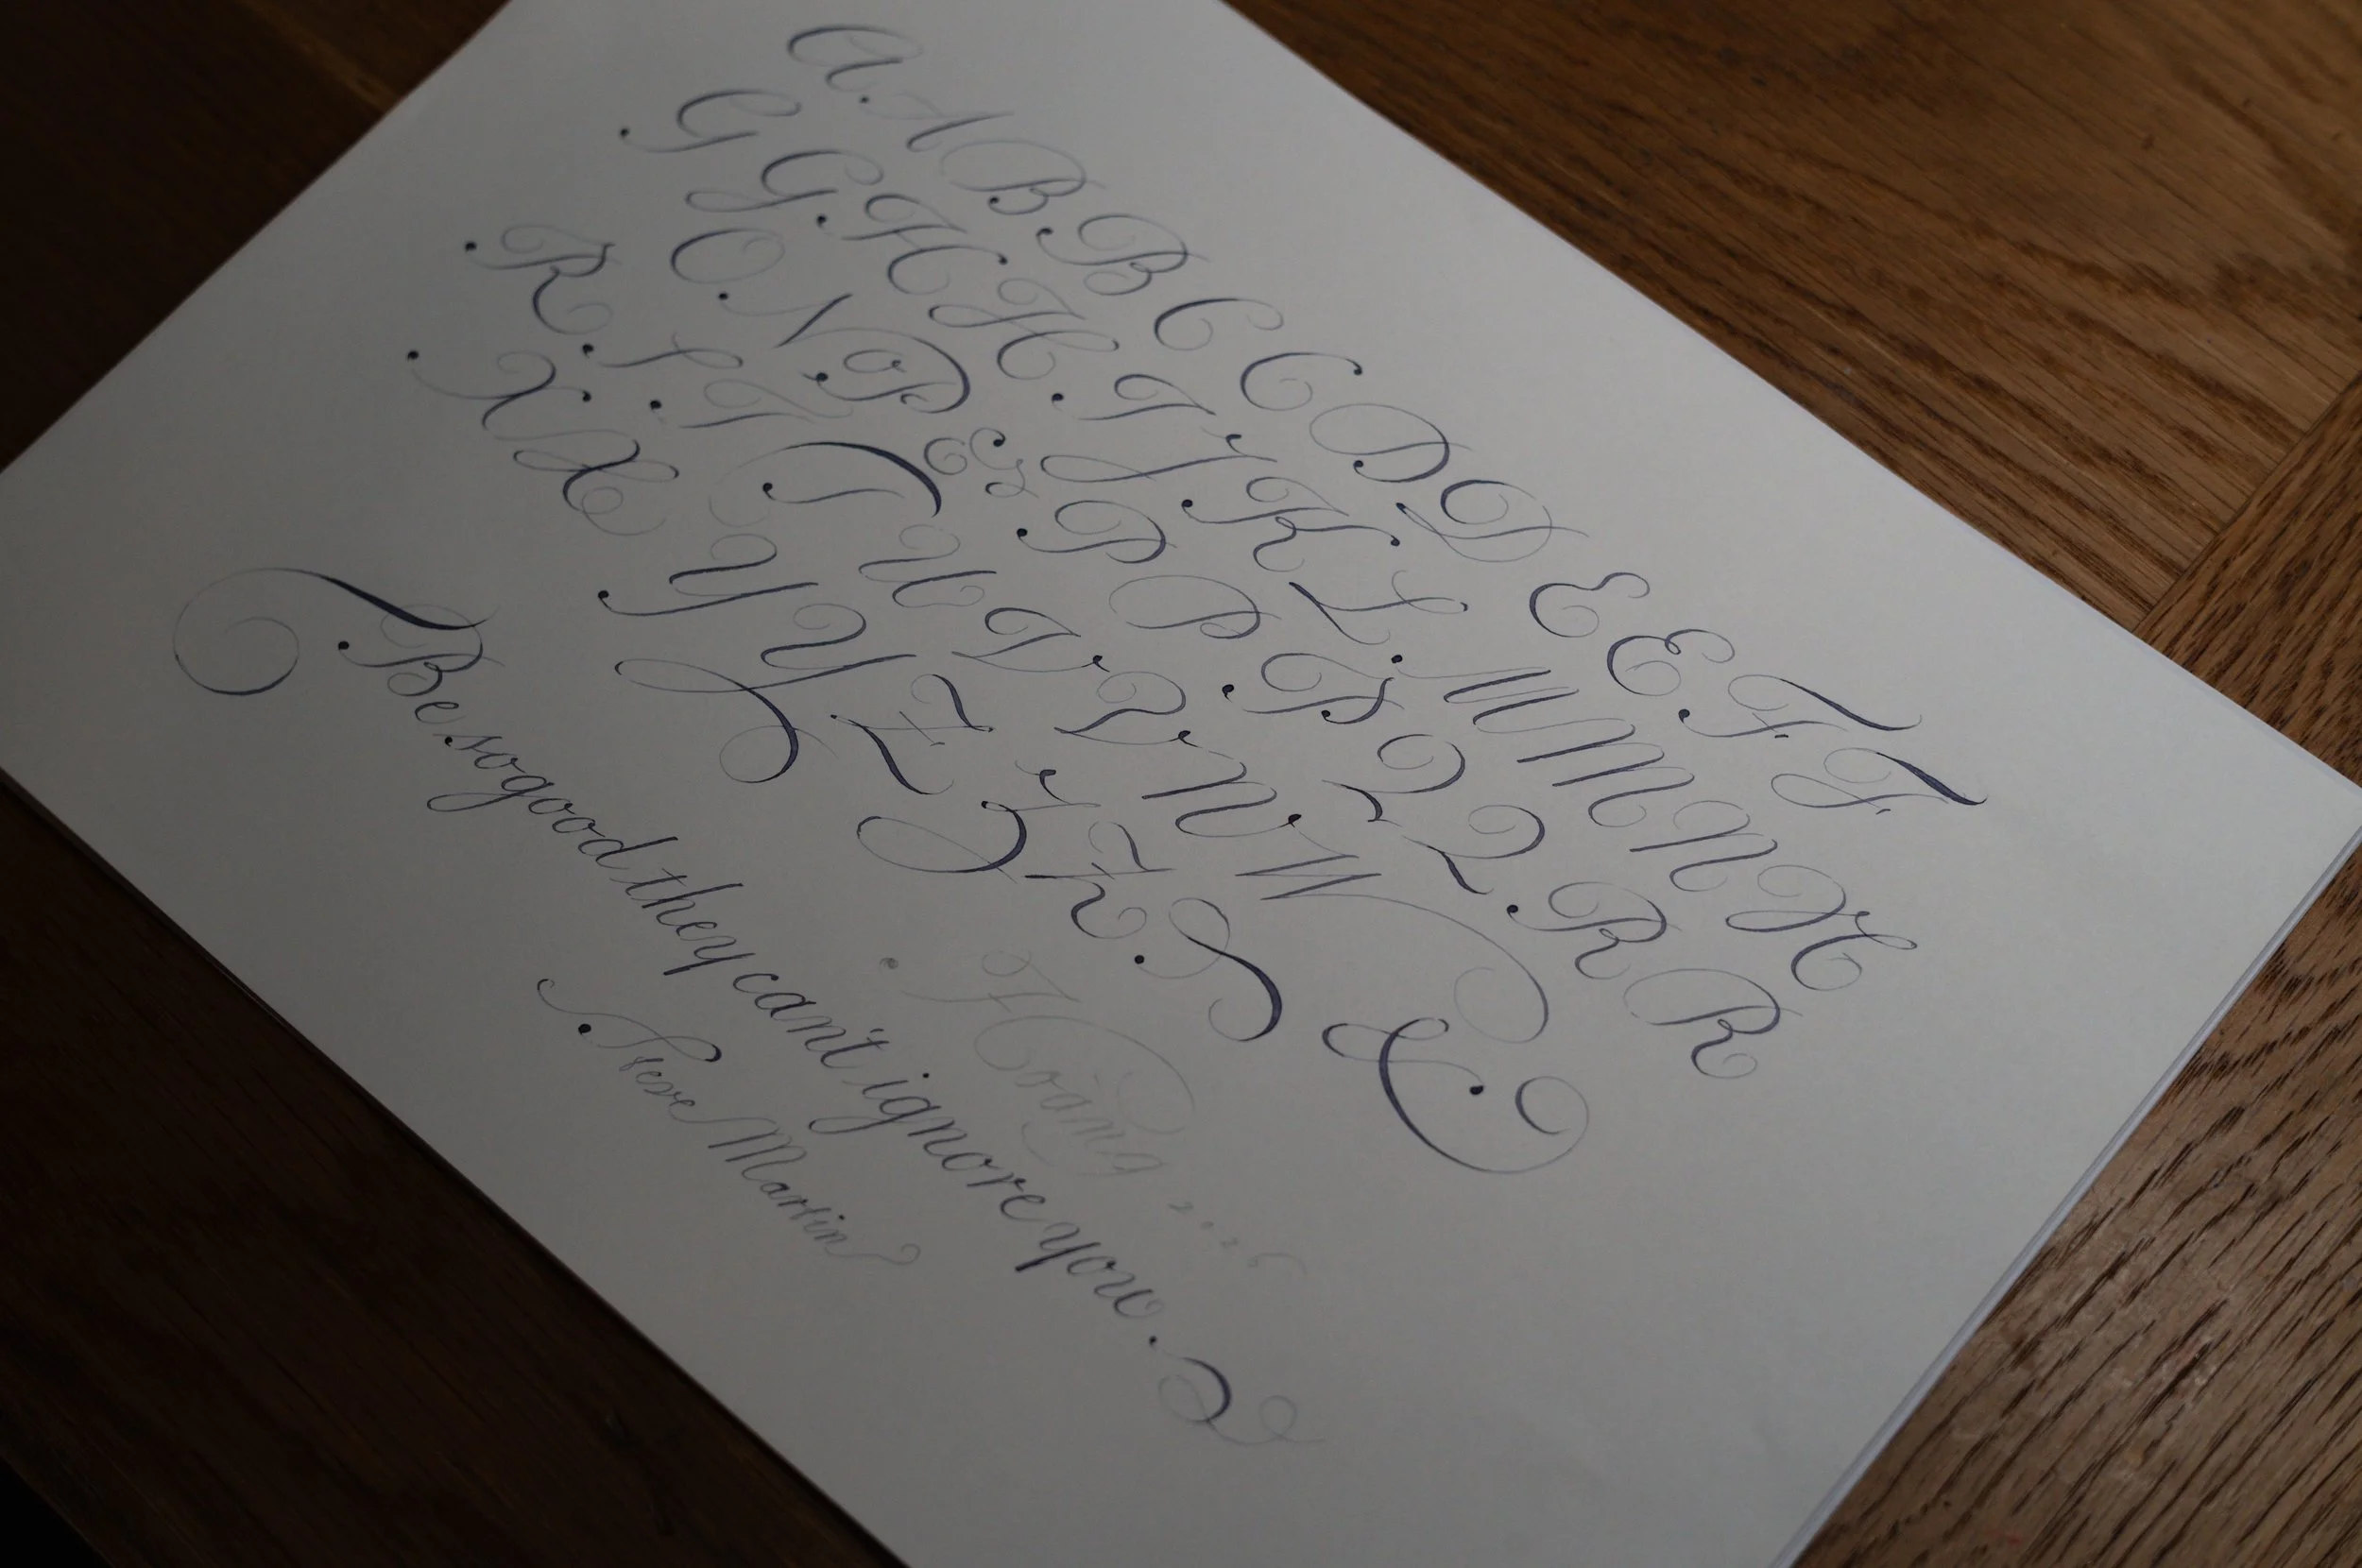 A A B B C C D D E E F F
G G H H I J K L M M N N
O N P P P P Q Q R R
R S T T U V V W W
X X Y Y Z Z Z &
Hoang
Be so good they can't ignore you.
Steve Martin